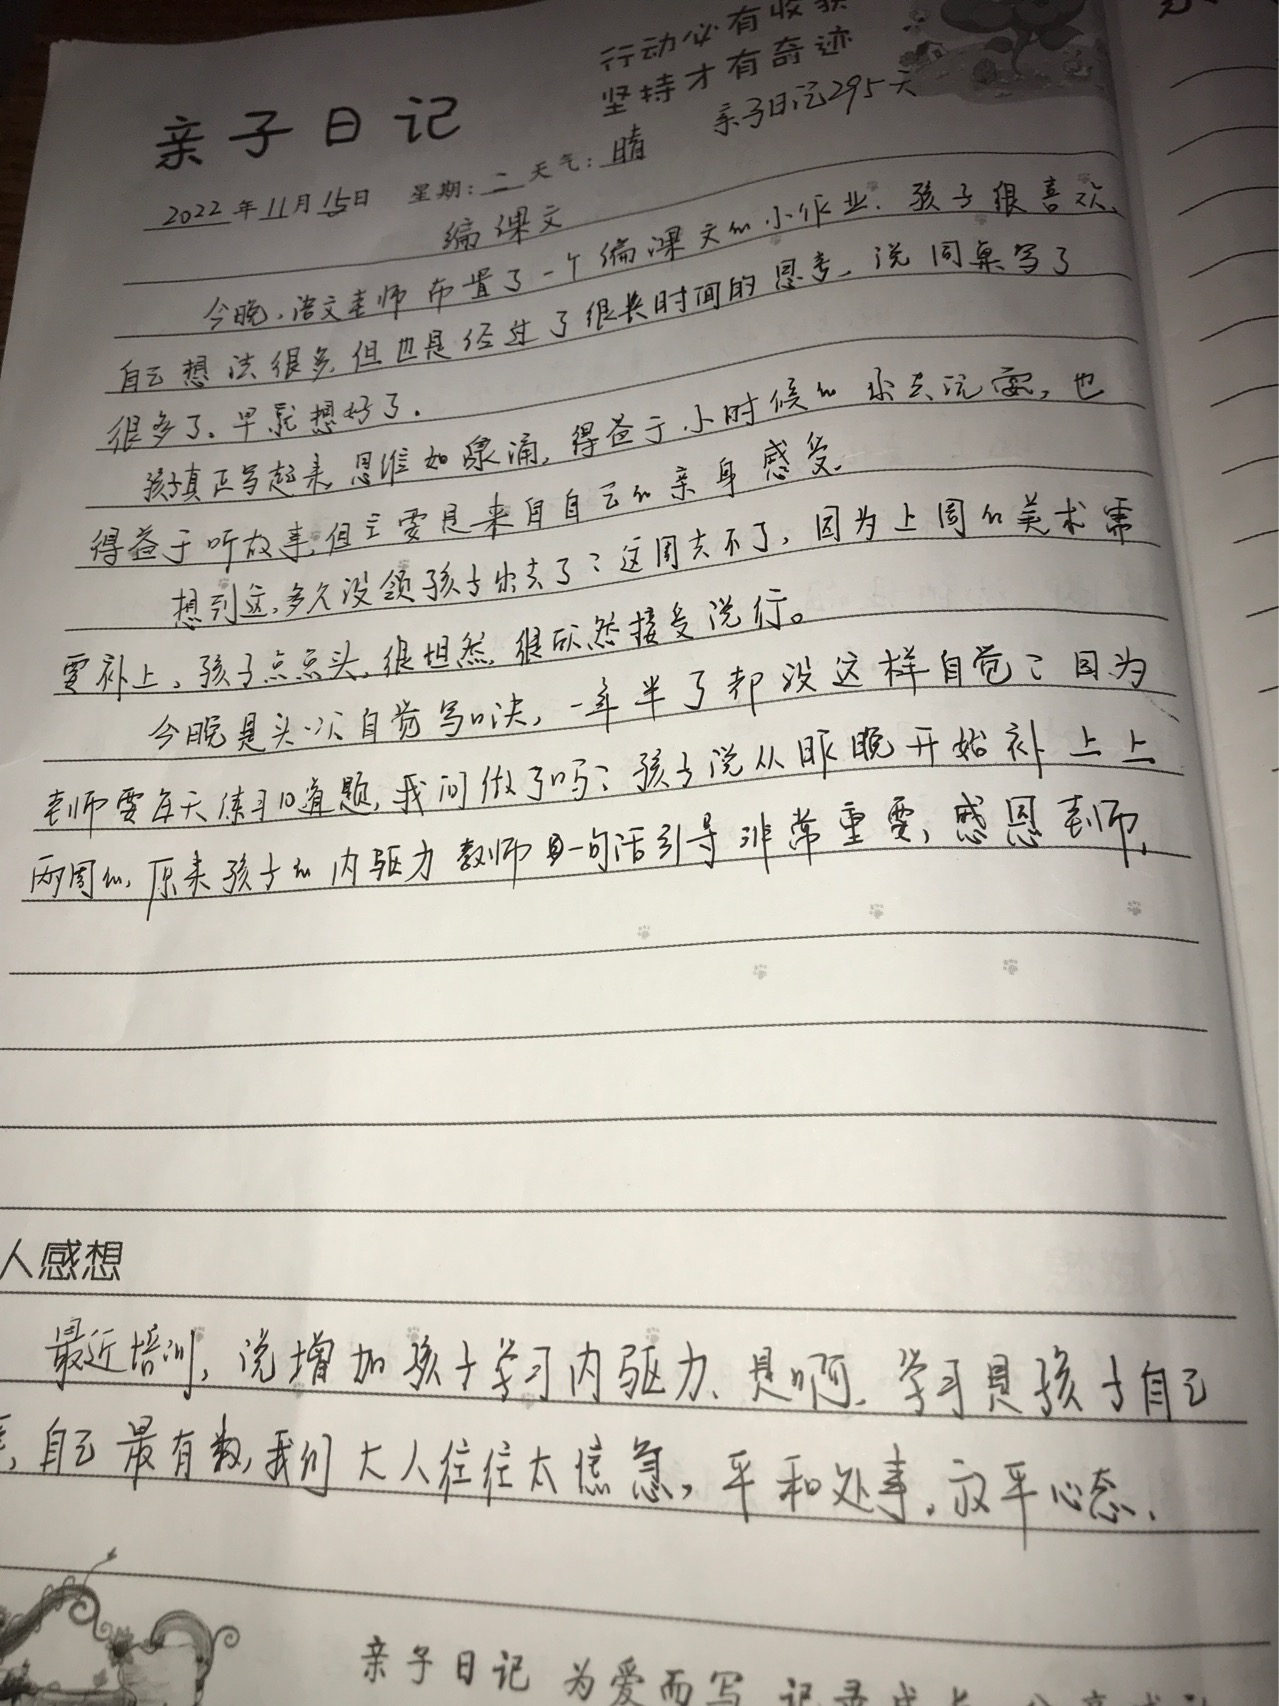 行动必有收获
坚持才有奇迹
亲子日记295天
亲子日记
2022年11月15日 星期:二 天气:晴
编课文
今晚,语文老师布置了一个编课文的小作业,孩子很喜欢,
自己想法很多,但也是经过了很长时间的思考,说同桌写了
很多了,早就想好了.
孩子真正写起来,思维如泉涌,得益于小时候的永去玩耍,也
得益于听故事,但主要是来自自己的亲身感受.
想到这,多久没领孩子出去了?这周去不了,因为上周的美术需
要补上,孩子点点头,很坦然,很欣然接受说行。
今晚是头一次自觉写口决,一年半了都没这样自觉?因为
老师要每天练习10道题,我问做了吗?孩子说从昨晚开始补上上
两周的,原来孩子的内驱力教师一句话引导非常重要,感恩老师.
人感想
最近培训,说增加孩子学习内驱力、是啊,学习是孩子自己
自己最有数,我们大人往往太焦急,平和处事,放平心态.
亲子日记 为爱而写 记录成长